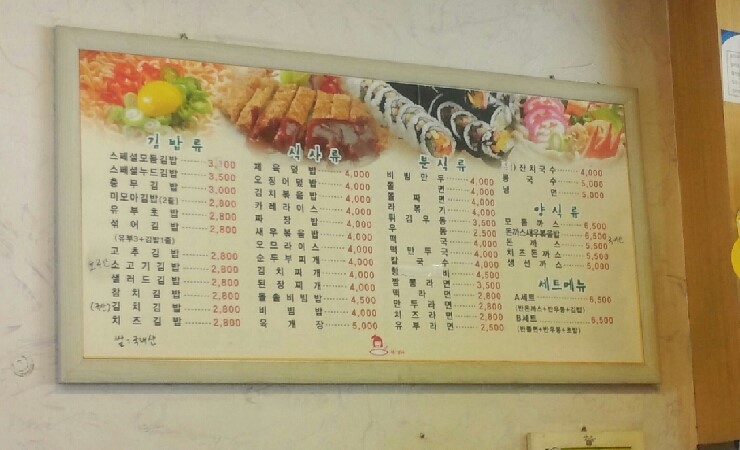 김밥류
스페셜모둠김밥 3,500
스페셜누드김밥 3,500
충무김밥 3,000
미모아김밥(2줄) 2,800
유부초밥 2,800
섞어김밥 2,800
(유부3+김밥1줄)
고추김밥 2,800
소고기김밥 2,800
샐러드김밥 2,800
참치김밥 2,800
김치김밥 2,800
치즈김밥 2,800
쌀-국내산
식사류
제육덮밥 4,000
오징어덮밥 4,000
김치볶음밥 4,000
카레라이스 4,000
짜장밥 4,000
새우볶음밥 4,000
오므라이스 4,000
순두부찌개 4,000
김치찌개 4,000
된장찌개 4,000
돌솥비빔밥 4,500
비빔밥 4,000
육개장 5,000
분식류
비빔만두 4,000
쫄면
우동
칼국수
수제비
라면
떡라면 2,800
만두라면 2,800
치즈라면 2,800
잔치국수 4,000
콩국수 5,000
냉면 5,000
양식류
모듬까스 6,500
돈까스새우볶음밥 6,500
돈까스 5,500
치즈돈까스 5,500
생선까스 5,000
세트메뉴
A세트 6,500
(반돈까스+반우동+김밥)
B세트 5,500
(반쫄면+반우동+초밥)